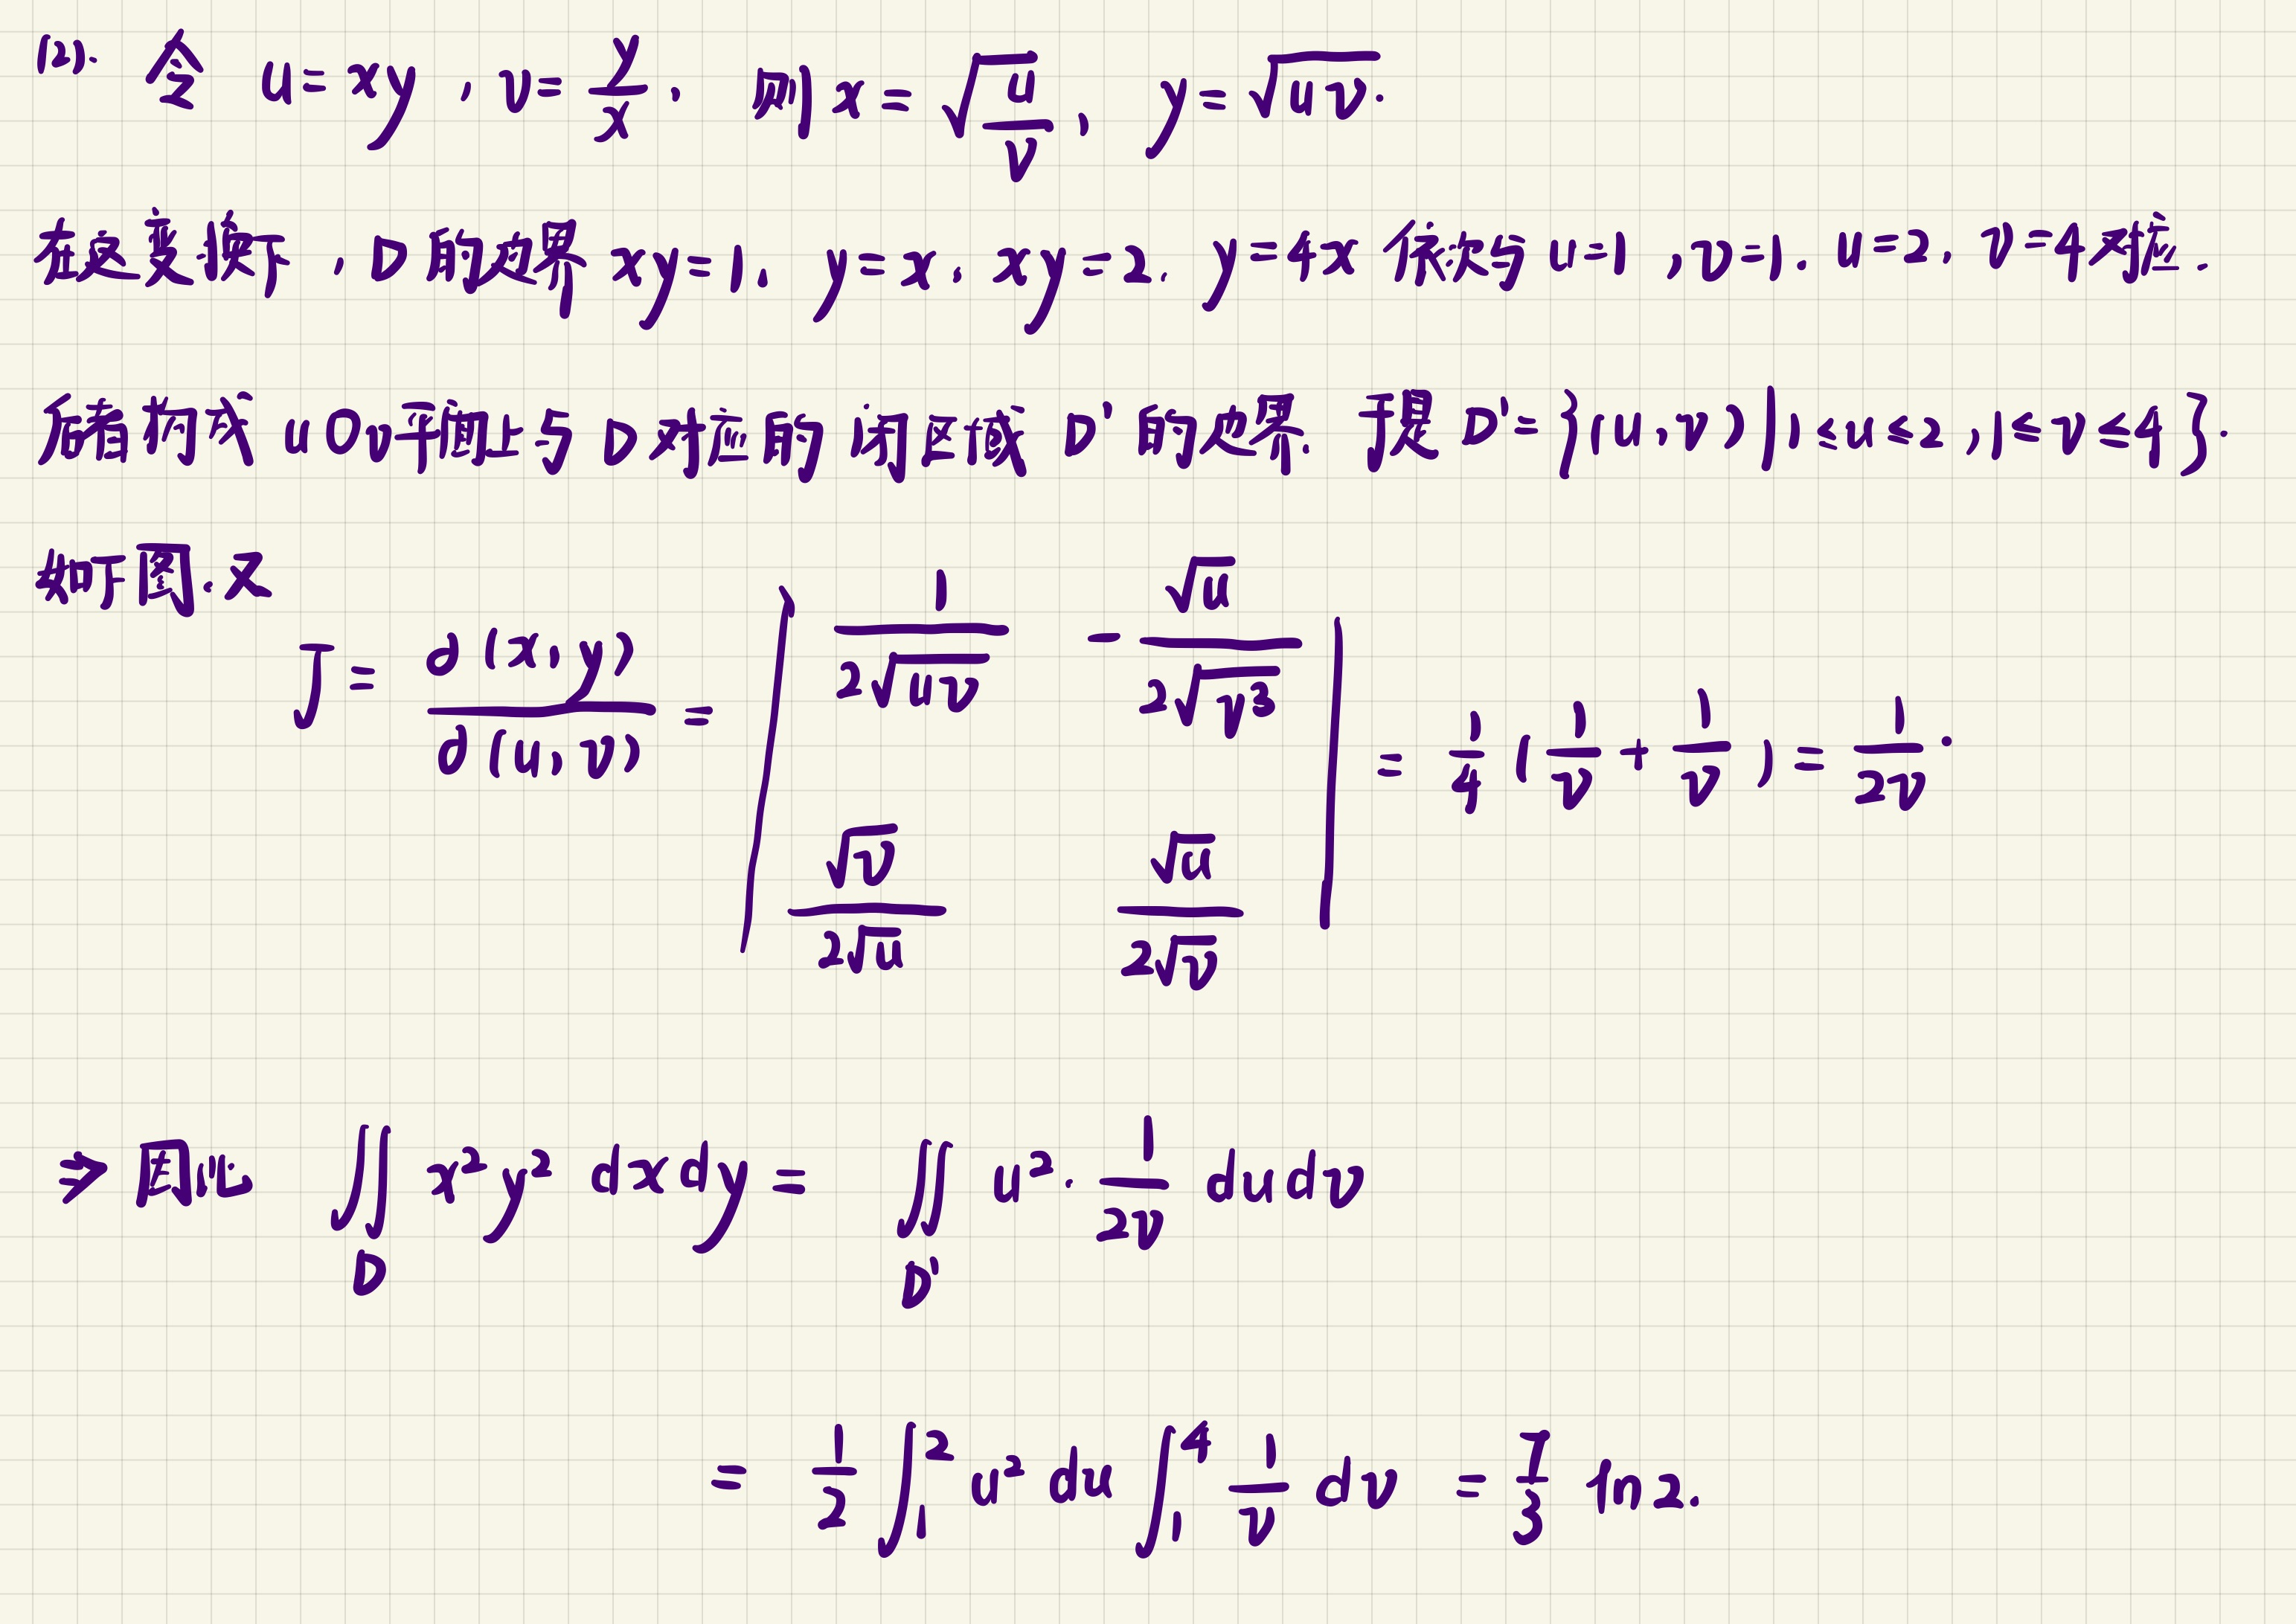 (2). 令 u = xy , v = y/x , 则 x = √(u/v) , y = √(uv) .
在这变换下 , D 的边界 xy = 1 , y = x , xy = 2 , y = 4x 依次与 u = 1 , v = 1 , u = 2 , v = 4 对应 .
后者构成 uOv 平面上与 D 对应的闭区域 D' 的边界. 于是 D' = {(u, v) | 1 ≤ u ≤ 2 , 1 ≤ v ≤ 4} .
如下图. 又
J = ∂(x, y)/∂(u, v) = | 1/(2√(uv))  -√u/(2√(v³)) ; √v/(2√u)  √u/(2√v) | = 1/4 (1/v + 1/v) = 1/(2v) .
⇒ 因此 ∬_D x²y² dxdy = ∬_D' u² · 1/(2v) dudv
= 1/2 ∫₁² u² du ∫₁⁴ 1/v dv = 7/3 ln2.